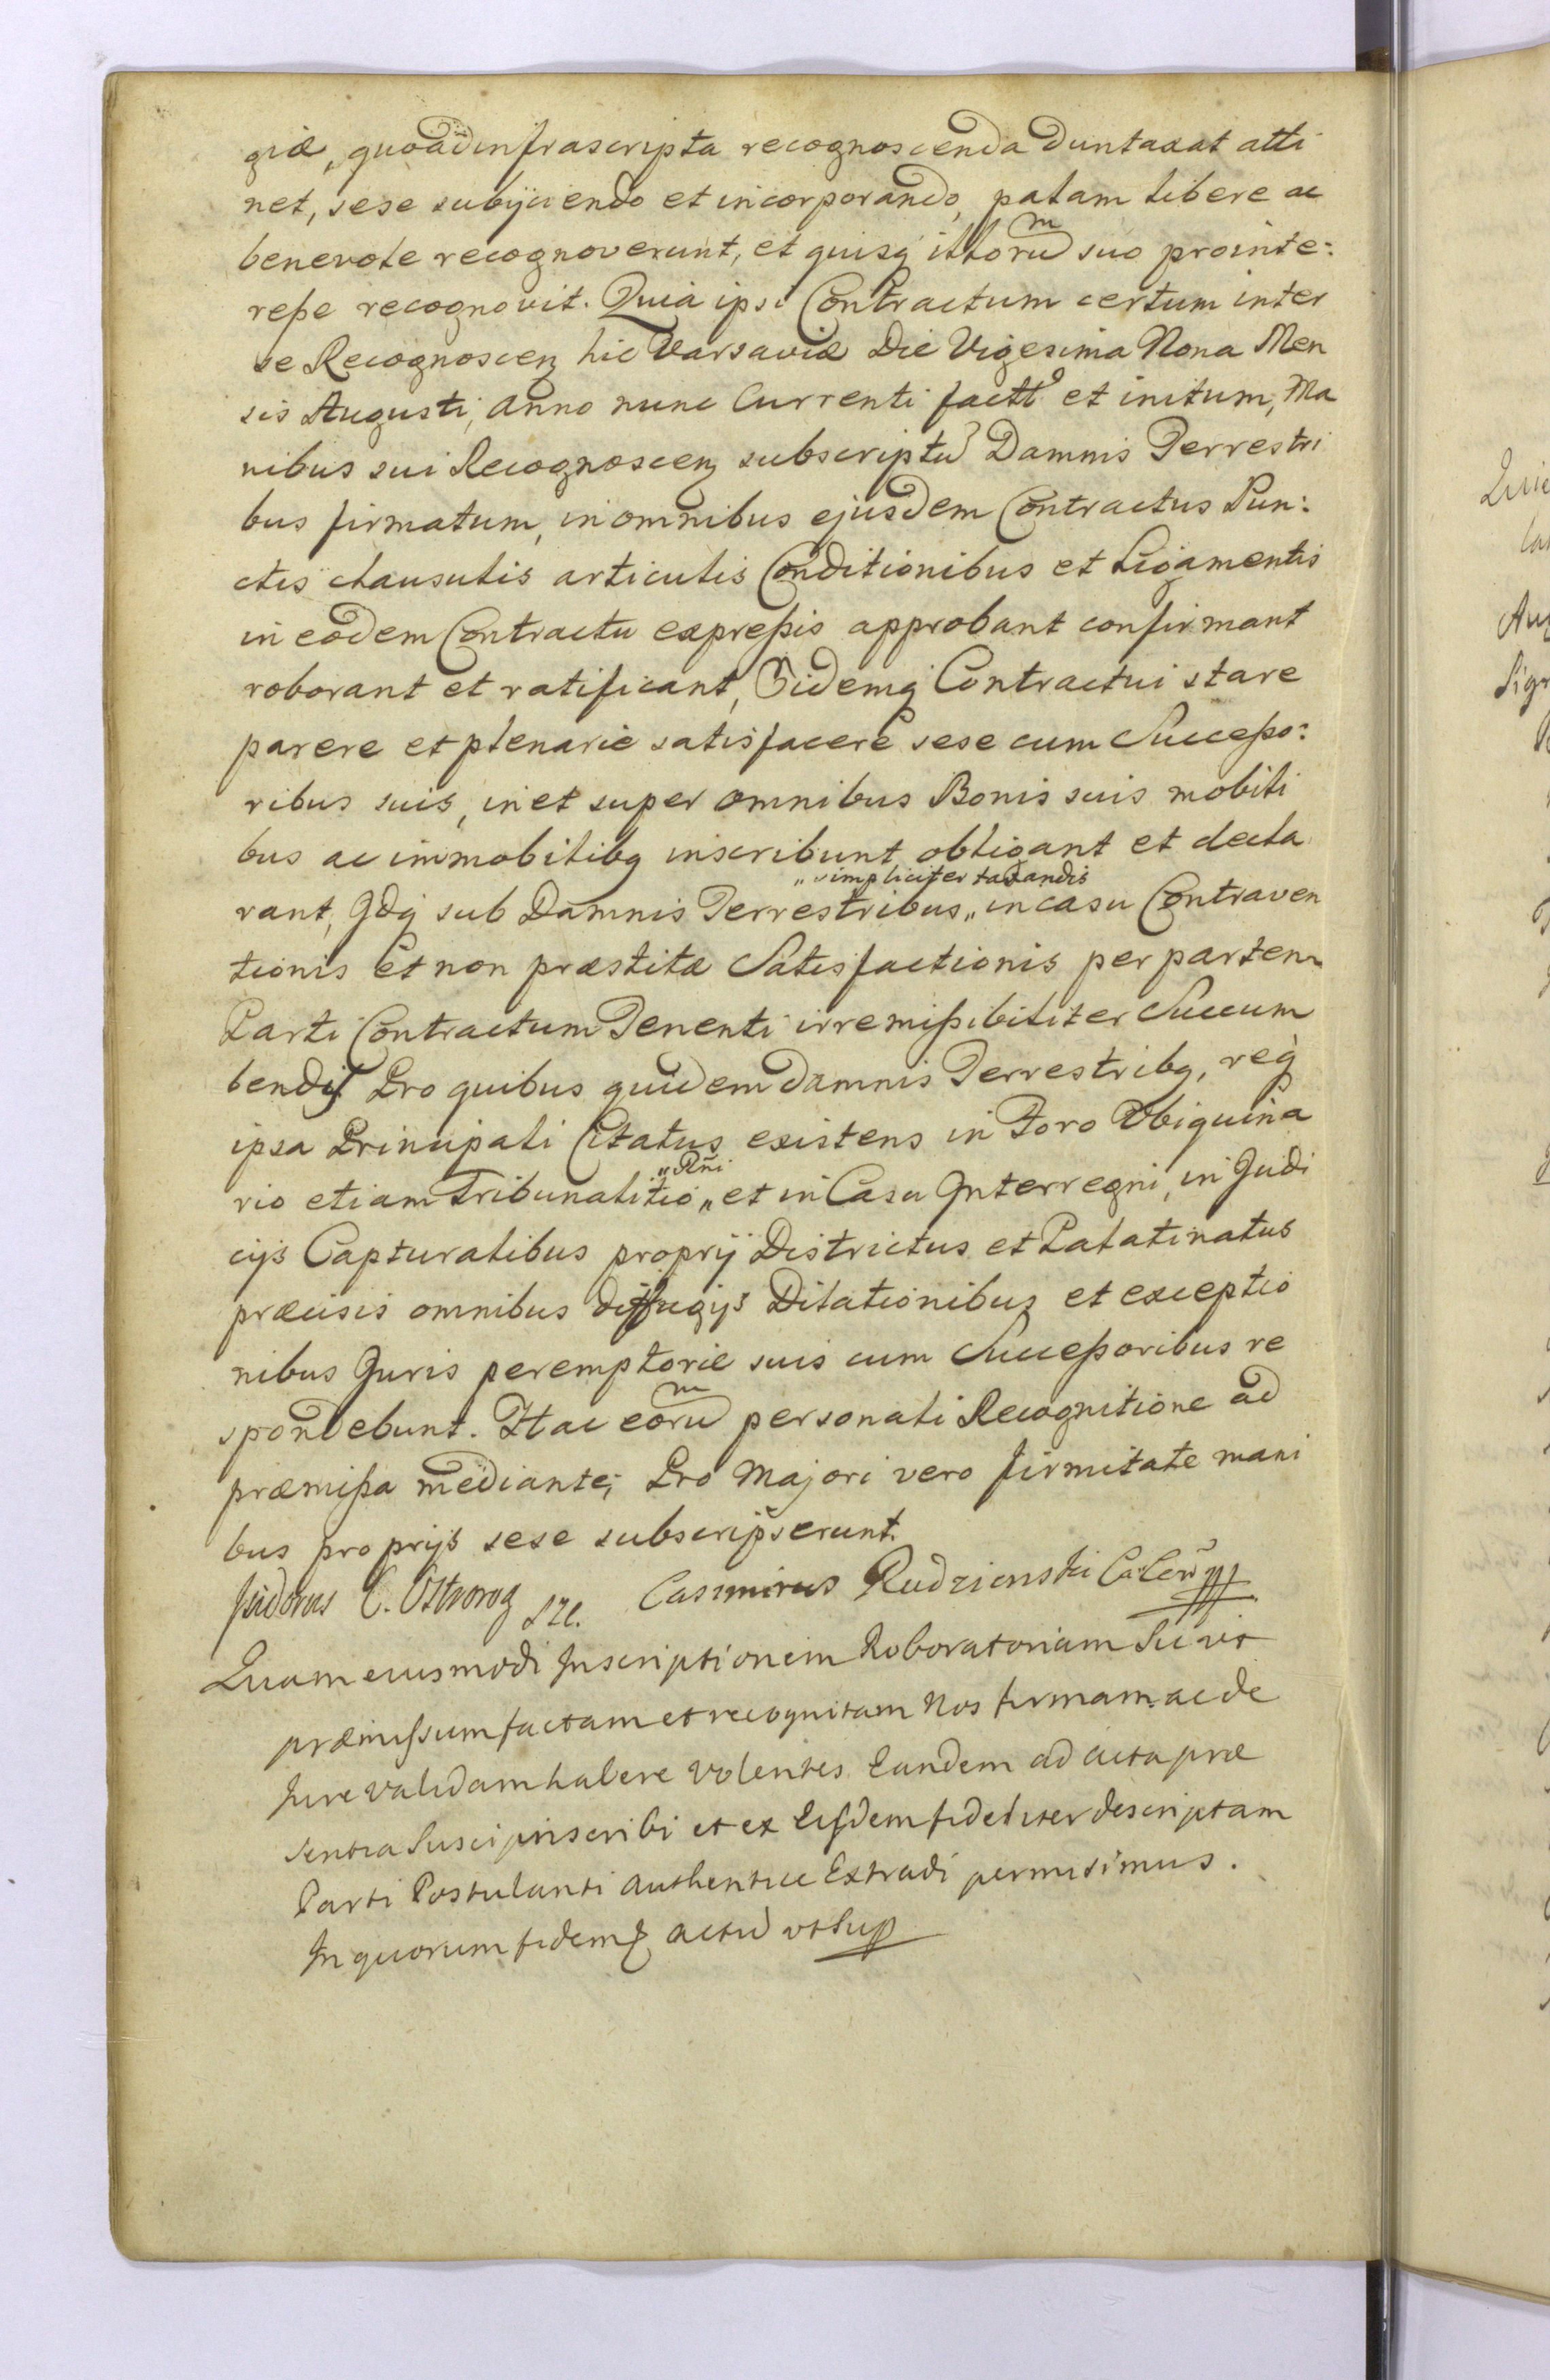 giæ, quoad infrascripta recognoscenda duntaxat atti
net, sese subijciendo et incorporando, palam libere ac
benevole recognoverunt, et quisq illorum suo prointe:
reße recognovit. Quia ipsi Contractum certum inter
se Recognoscen hic Varsaviæ Die Vigesima Nona Men
sis Augusti, Anno nunc Currenti factt et initum, Ma
nibus sui Recognoscen subscriptu Damnis Terrestri
bus firmatum, in omnibus ejusdem Contractus Pun:
ctis clausulis articulis Conditionibus et Ligamentis
in eodem Contractu expreßis approbant confirmant
roborant et ratificant, Eidemq Contractui stare
parere et plenarie satisfacere sese cum Succeßo:
ribus suis, in et super omnibus Bonis suis mobili
bus ac immobilibq inscribunt obligant et decla
„simpliciter taxandis
rant, Idq sub Damnis Terrestribus„ in casu Contraven
tionis et non præstitæ Satisfactionis per partem
Parti Contractum Tenenti irremißibiliter Succum
bendis Pro quibus quidem damnis Terrestribq, req
ipsa Principali Citatus existens in Foro Ubiquina
„Rñi
rio etiam Tribunalitio„ et in Casu Interregni, in Judi
cijs Capturalibus proprij Districtus et Palatinatus
præcisis omnibus diffugijs Dilationibus et exceptio
nibus Juris peremptorie suis cum Succeßoribus re
spondebunt. Hac eorum personali Recognitione ad
præmißa mediante; Pro Majori vero firmitate mani
bus proprijs sese subscripserunt.
Isidorus C. Ostrorog Casimirus Rudzienski
Quam eiusmodi Inscriptionem Roboratoriam Sic ut
præmissum factam et recognitam Nos firmam ac de
Jure validam habere Volentes Eandem ad acta præ
sentia Suscipi inscribi et ex Eisdem fideliter descriptam
Parti Postulanti authentice Extradi permisimus.
In quorum fidem actu ut Sup